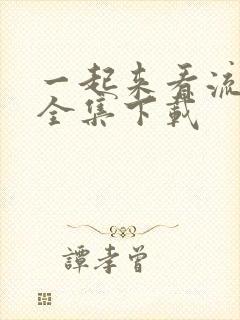 一起来看流
全集下载
譚孝曾